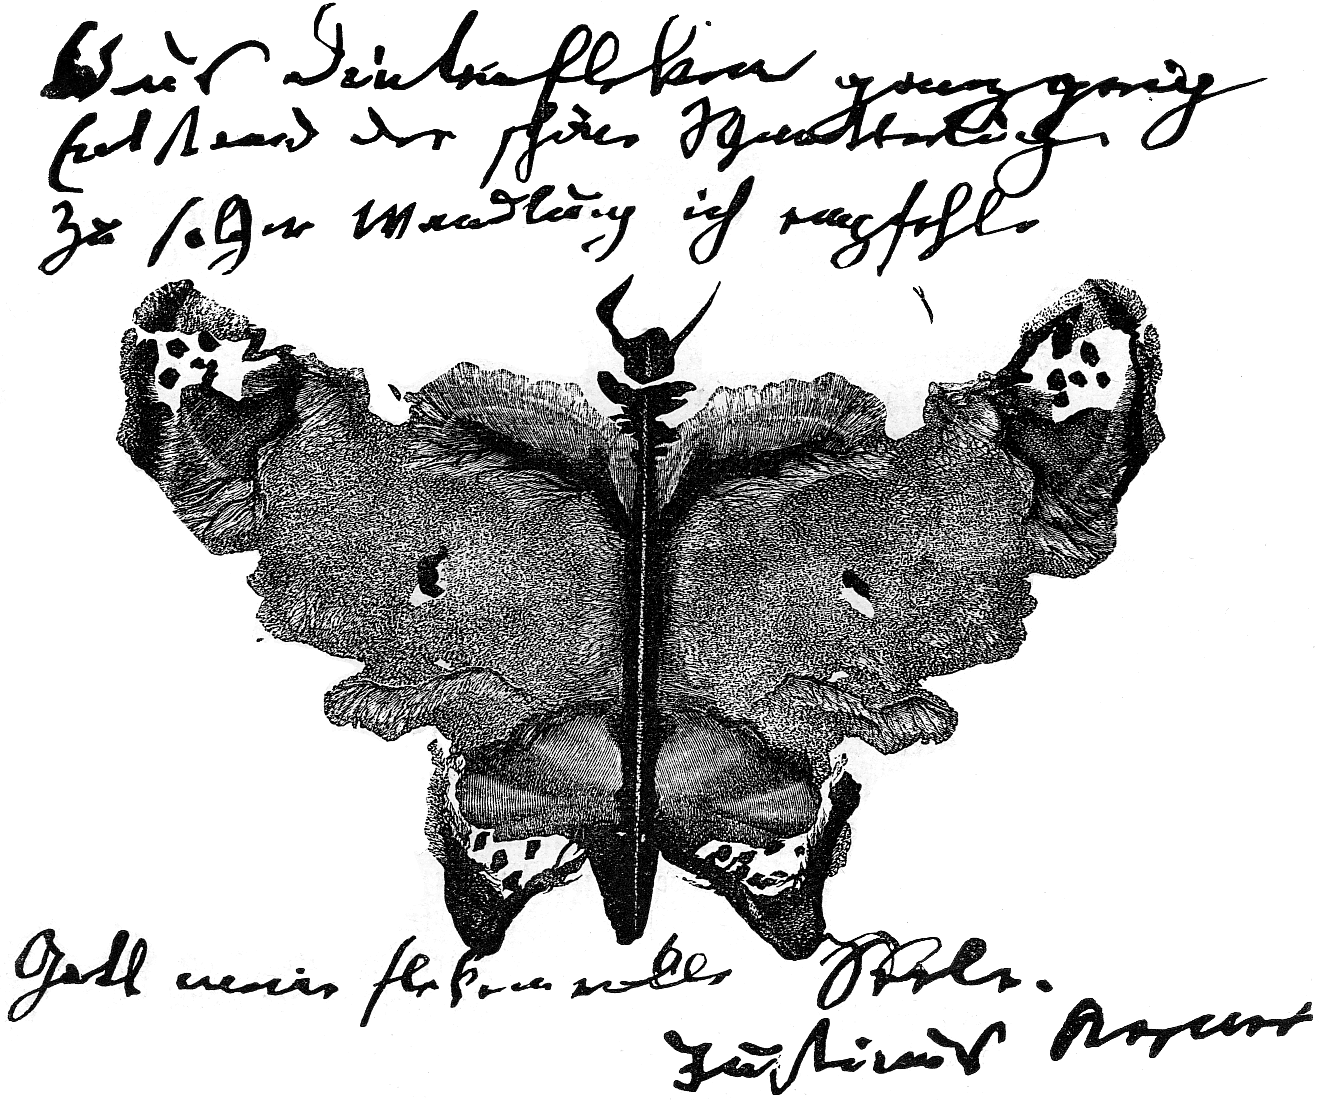 Aus Dintenfleken ganz gering
Entstand der schöne Schmetterling
Zu solcher Wandlung ich empfehle
Gott meine flekenvolle Seele.
Justinus Kerner